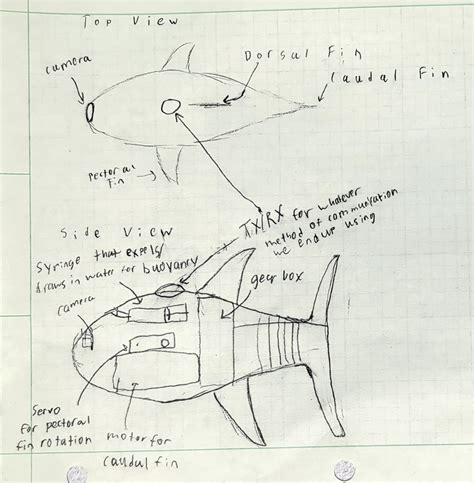 Top View
Dorsal Fin
camera
Caudal Fin
Pectoral
Fin
TX/RX for whatever
method of communication
we endup using
Side View
Syringe that expels/
draws in water for buoyancy
camera
gear box
Servo
for pectoral
fin rotation
motor for
caudal fin